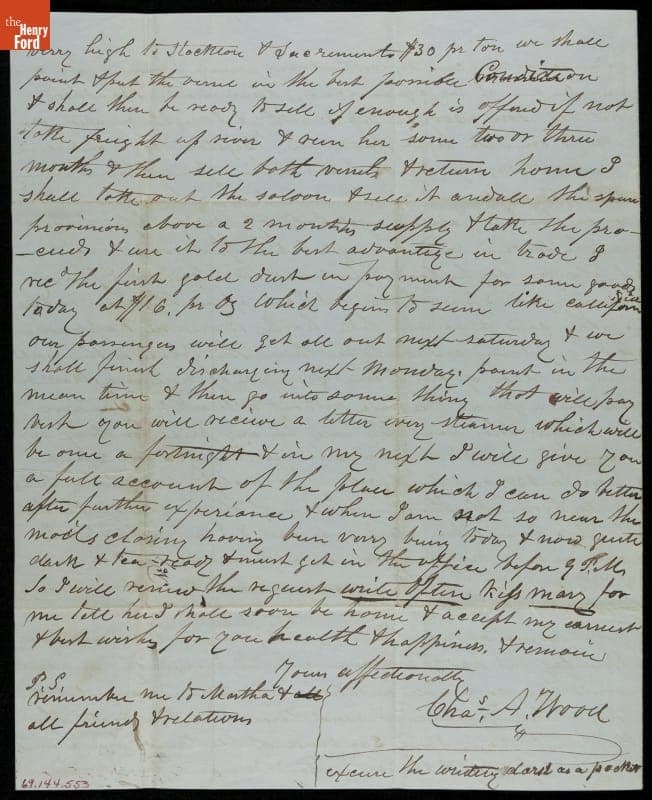 the
Henry
Ford
verry high to Stockton & Sacremento $30 pr ton we shall
paint & put the vessel in the best possible Condition
& shall then be ready to sell if enough is offerd if not
take freight up river & run her some two or three
months & then sell both vessels & return home I
shall take out the saloon & sell it and all the spare
provisions above a 2 months supply & take the pro-
-ceeds & use it to the best advantage in trade I
recd the first gold dust in payment for some goods
today at $16. pr Oz which begins to seem like California
our passengers will get all out next saturday & we
shall finish discharging next Monday. paint in the
mean time & then go into some thing that will pay
best you will receive a letter every steamer which will
be once a fortnight & in my next I will give you
a full account of the place which I can do better
after further experiance & when I am not so near the
mails closing having been verry busy today & now quite
dark & tea ready & must get in the office before 9 P.M.
So I will renew the request write Often Kiss mary for
me tell her I shall soon be home & accept my earnest
& best wishes for you health & happiness & remain
Yours affectionally
Chas. A. Wood
P.S.
remember me to Martha & all
all friends & relations
excuse the writing dark as a pocket
69.144.553